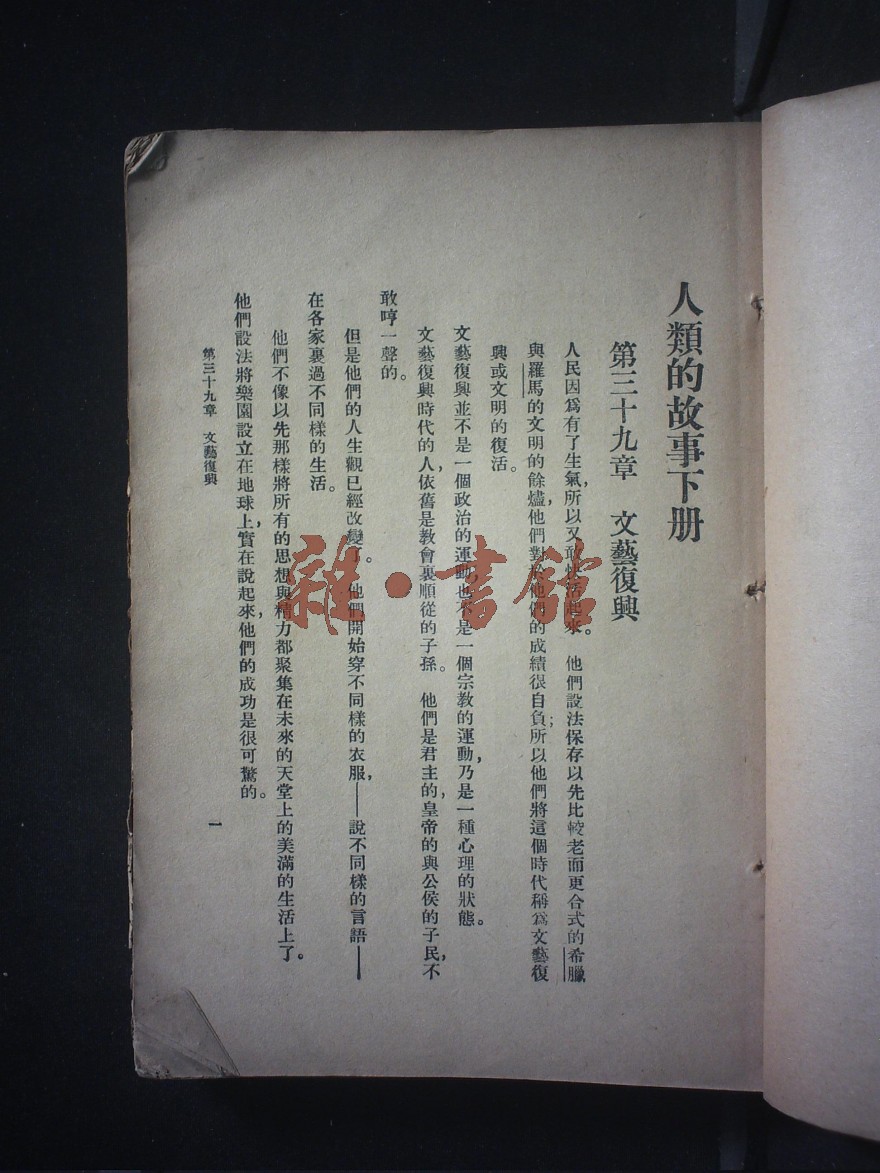 人類的故事下册
第三十九章　文藝復興
人民因爲有了生氣，所以又敢快活起來。他們設法保存以先比較老而更合式的希臘
與羅馬的文明的餘燼，他們對於他們的成績很自負；所以他們將這個時代稱爲文藝復
興或文明的復活。
文藝復興並不是一個政治的運動也不是一個宗教的運動，乃是一種心理的狀態。
文藝復興時代的人，依舊是教會裏順從的子孫。他們是君主的，皇帝的與公侯的子民，不
敢哼一聲的。
但是他們的人生觀已經改變了。他們開始穿不同樣的衣服，——說不同樣的言語——
在各家裏過不同樣的生活。
他們不像以先那樣將所有的思想與精力都聚集在未來的天堂上的美滿的生活上了。
他們設法將樂園設立在地球上，實在說起來，他們的成功是很可驚的。
第三十九章　文藝復興
一
雜·書館